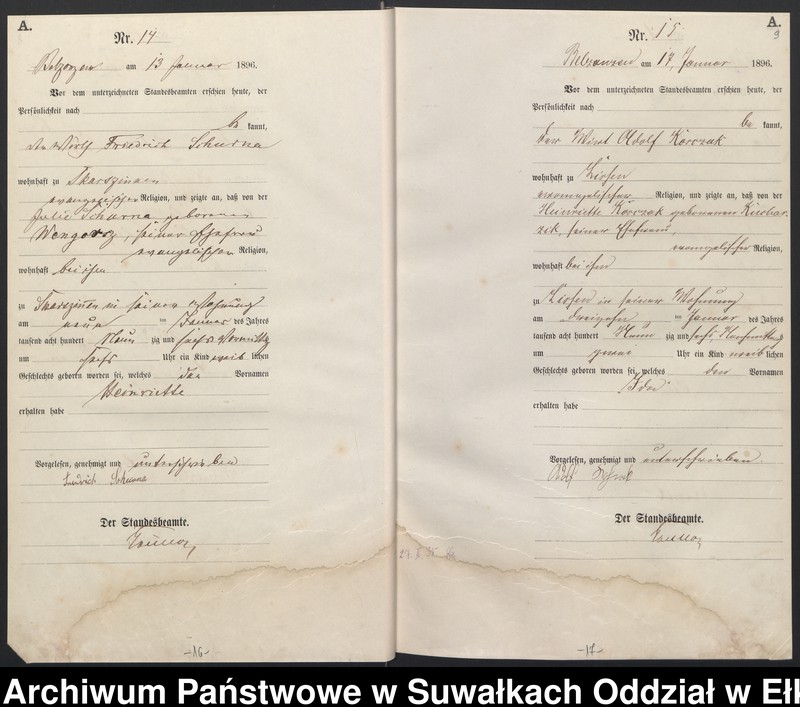 A.
Nr. 14
am 13 Januar 1896.
Vor dem unterzeichneten Standesbeamten erschien heute, der
Persönlichkeit nach
be kannt,
der Wirth Friedrich Schurna
wohnhaft zu Skarszinnen
evangelischer Religion, und zeigte an, daß von der
Julie Schurna geborenen
seiner Ehefrau
evangelischer Religion,
wohnhaft bei ihm
zu Skarszinnen in seiner Wohnung
am neun ten Januar des Jahres
tausend acht hundert Neun zig und sechs Vormittag
um sechs Uhr ein Kind weib lichen
Geschlechts geboren worden sei, welches den Vornamen
Heinriette
erhalten habe
Vorgelesen, genehmigt und unterschrieben
Friedrich Schurna
Der Standesbeamte.
-16-
A.
9
Nr. 15
am 17 Januar 1896.
Vor dem unterzeichneten Standesbeamten erschien heute, der
Persönlichkeit nach
be kannt,
der Wirt Adolf Korczak
wohnhaft zu
evangelischer Religion, und zeigte an, daß von der
Heinriette Korczak geborenen
seiner Ehefrau,
evangelischer Religion,
wohnhaft bei ihm
zu in seiner Wohnung
am dreizehn ten Januar des Jahres
tausend acht hundert Neun zig und sechs, Nachmittag
um zwei Uhr ein Kind weib lichen
Geschlechts geboren worden sei, welches den Vornamen
Ida
erhalten habe
Vorgelesen, genehmigt und unterschrieben
Adolf
Der Standesbeamte.
-17-
Archiwum Państwowe w Suwałkach Oddział w Ełk